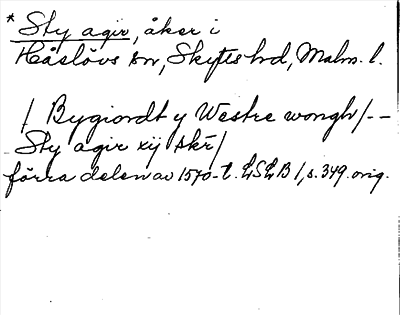 * Sty agir, åker i
Håslövs sn, Skytts hd, Malm. l.
/ Bygiordt y Westre wongh / --
Sty agir xij skr /
förra delen av 1570-t. LSLB 1, s. 349. orig.